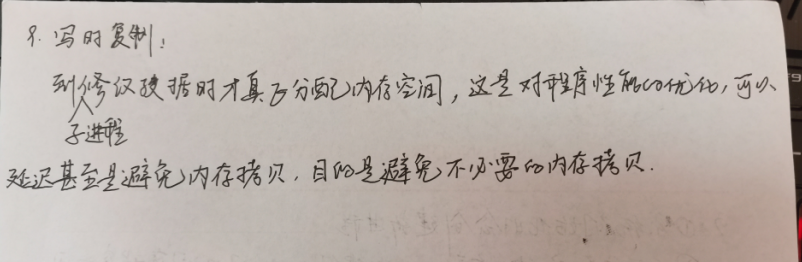 8. 写时复制:
到修改数据时才真正分配内存空间,这是对程序性能的优化,可以
子进程
延迟甚至是避免内存拷贝,目的是避免不必要的内存拷贝.